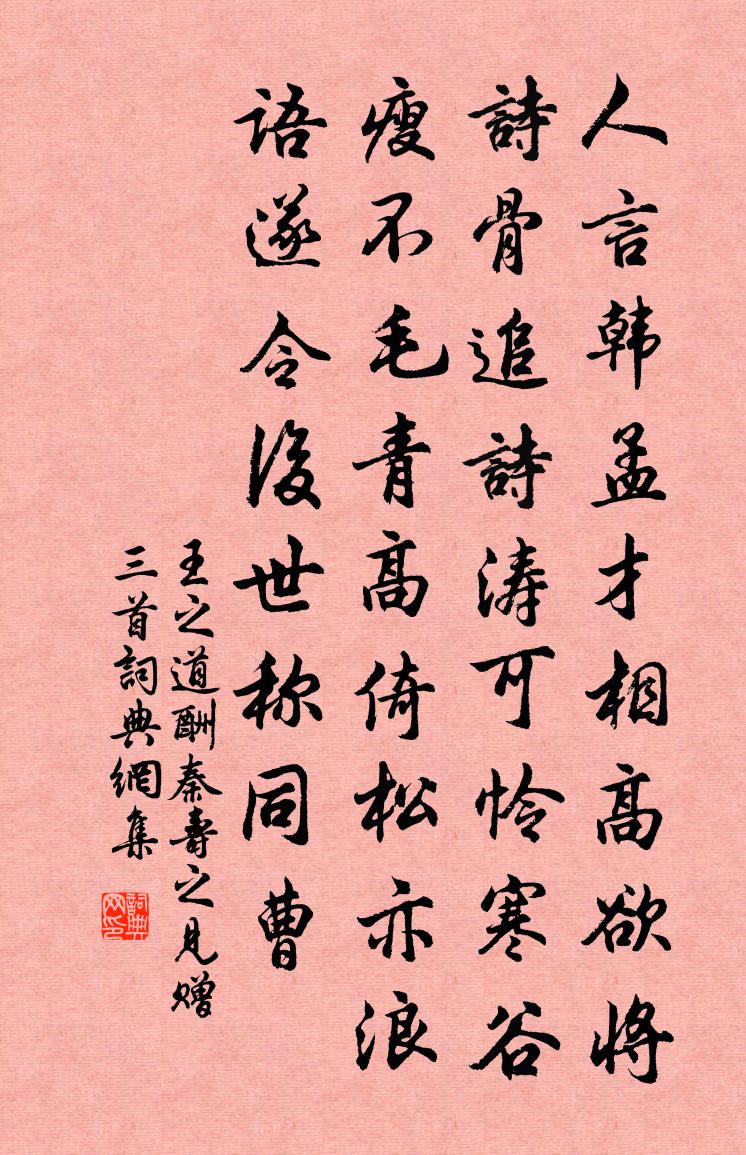 人言韩孟才相高欲将
詩骨追詩涛可怜寒谷
瘦不毛青高倚松亦浪
語遂令後世称同曹
王之道酬秦寿之见赠
三首詞典網集
詞典
网印